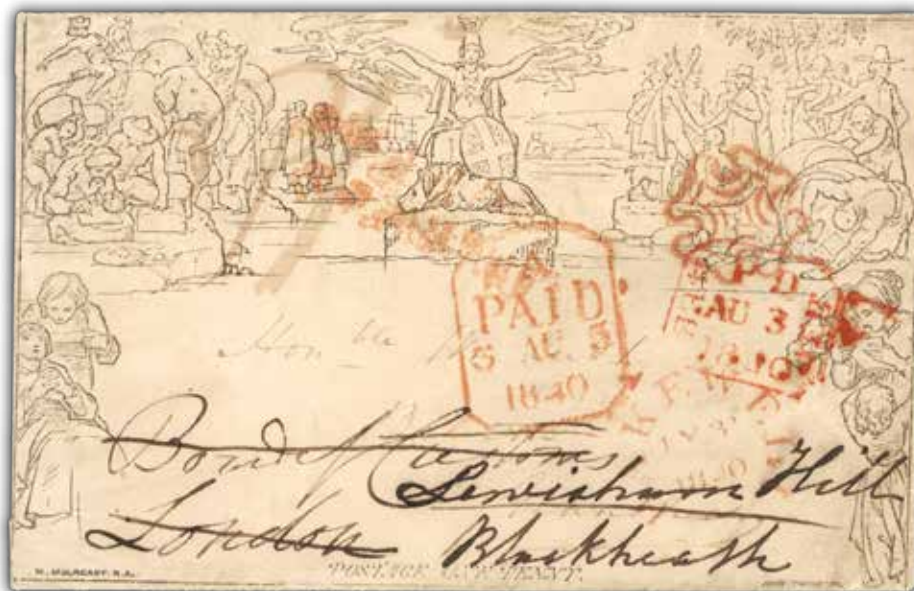 Honble
PAID
5 AU 3
1840
AU 3
Board of Customs
Lewisham Hill
London Blackheath
W. MULREADY. R.A.
POSTAGE ONE PENNY.